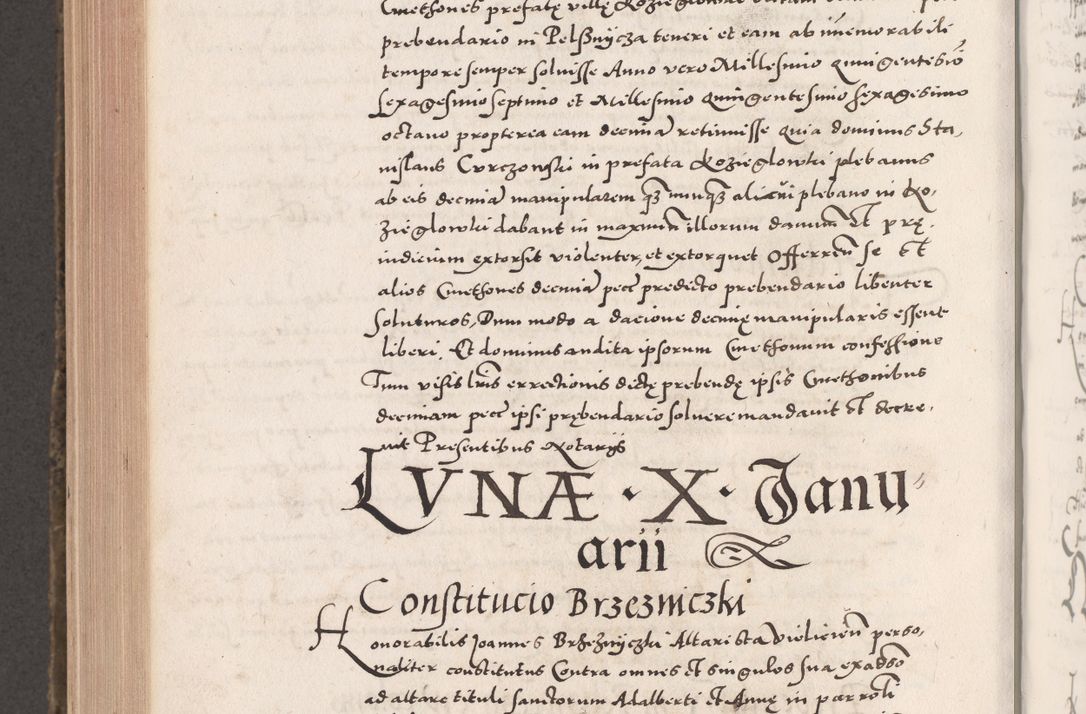 Cmethones prefatę villę Kozieglowki
prebendario in Pelßnycza teneri et eam ab immemorabili
tempore semper soluisse Anno vero Millesimo quingentesio
sexagesimo septimo et Millesimo quingentesimo sexagesimo
octauo propterea eam decimā retinuisse quia dominus Sta,
nislaus Curczowski in prefata Kozieglowki plebanus
ab eis decimā manipularem quā nunquā alicui plebano in Ko,
zieglowki dabant in maximū illorum danum Et prę,
iudicium extorsit violenter, et extorquet Offerren̄ se Et
alios Cmethones decimā pecc predicto prebendario libenter
soluturos, Dum modo a dacione decimę manipularis essent
liberi. Et dominus audita ipsorum Cmethonum confessione
Tum visis lris errectionis dictę prebendę ipsis Cmethonibus
decimam pecc ipsi prębendario soluere mandauit Et decre,
uit Presentibus Notariis
LVNÆ · X · Janu,
arii
Constitucio Brzezniczki
Honorabilis Joannes Brzeznyczki Altarista Vieliciēn perso,
naliter constitutus Contra omnes Et singulos sua ex adso
ad altare tituli sanctorum Adalberti Et Annę in parroli